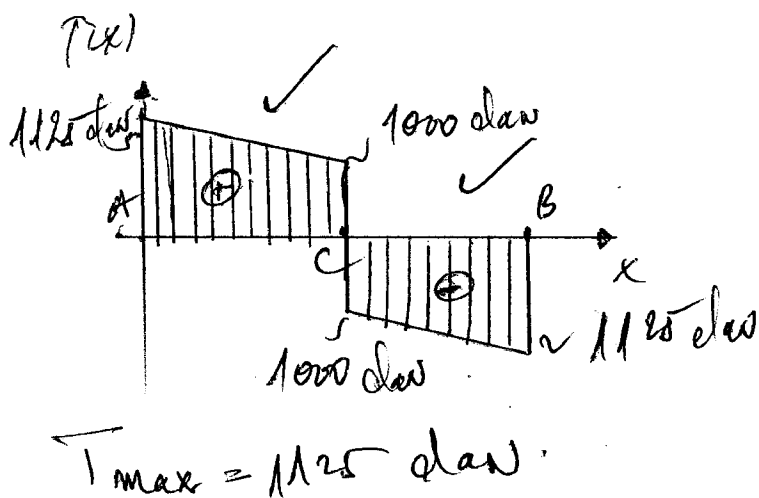 T(x)
1125 daN
1000 daN
A
+
B
C
x
-
1125 daN
1000 daN
Tmax = 1125 daN.